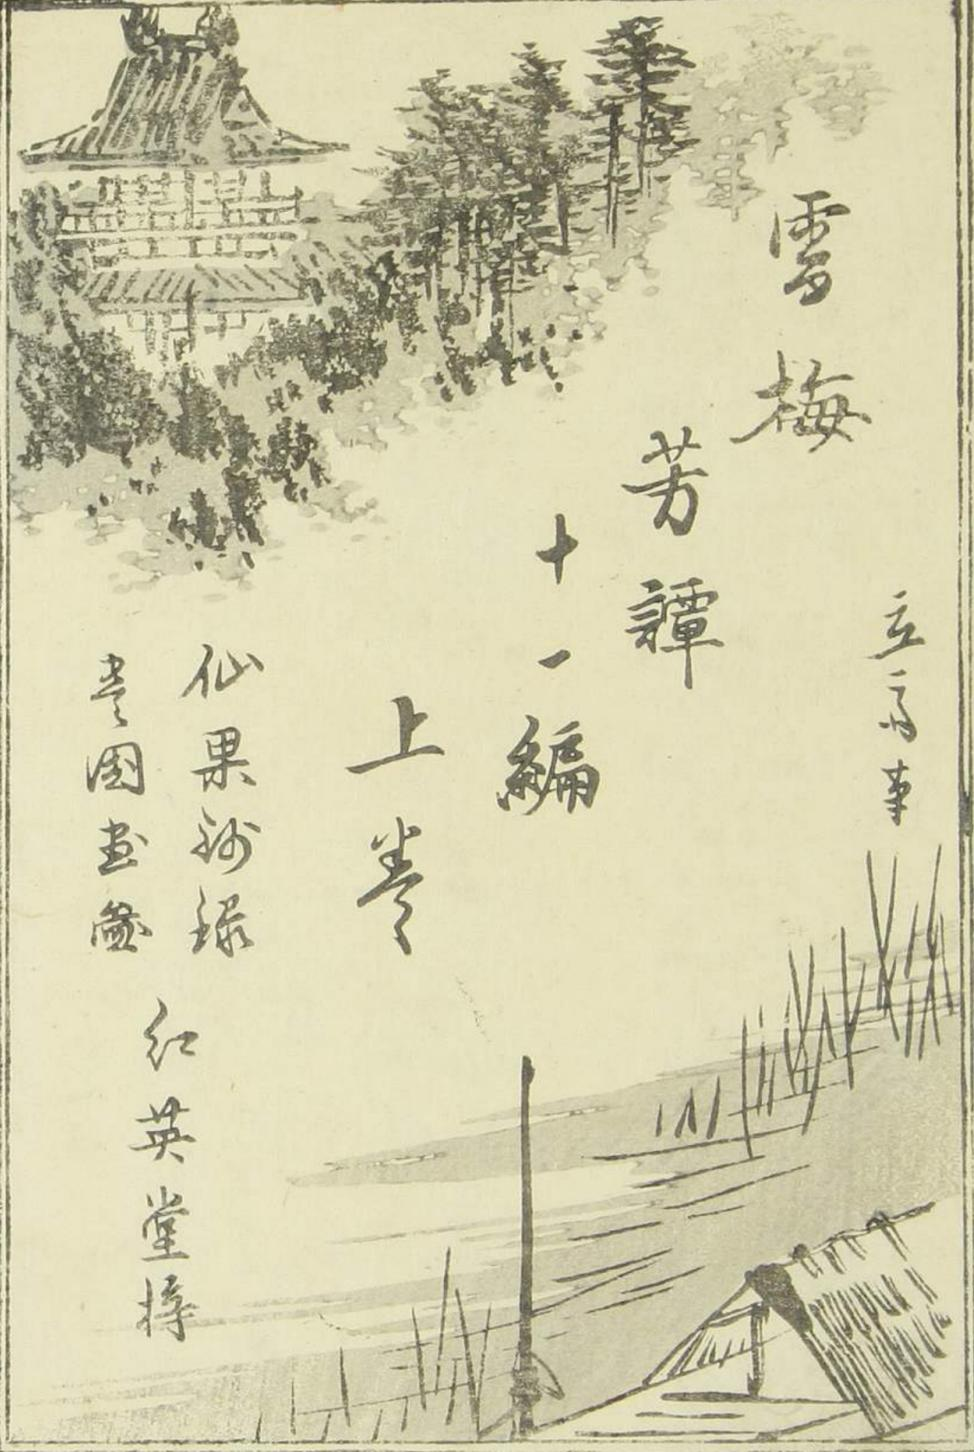 立斎
雪梅
芳譚
十一編
上巻
仙果鈔録
豊国画圖
紅英堂梓